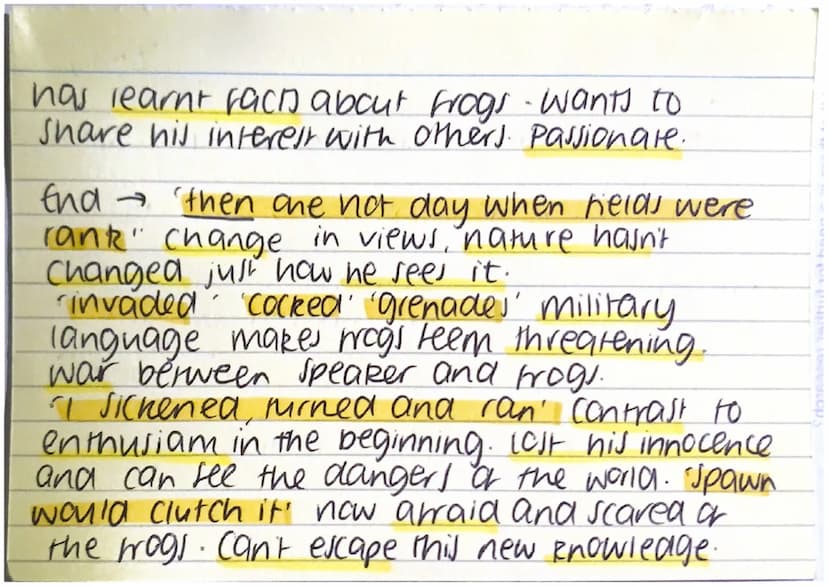 has learnt facts about frogs. wants to
share his interest with others. passionate.
End → 'then one hot day when fields were
rank" change in views, nature hasn't
changed just how he sees it.
'invaded' 'cocked' 'grenades' military
language makes frogs seem threatening.
war between speaker and frogs.
'I sickened, turned and ran' contrast to
enthusiam in the beginning. lost his innocence
and can see the dangers of the world. 'spawn
would clutch it' now afraid and scared of
the frogs. can't escape this new knowledge.